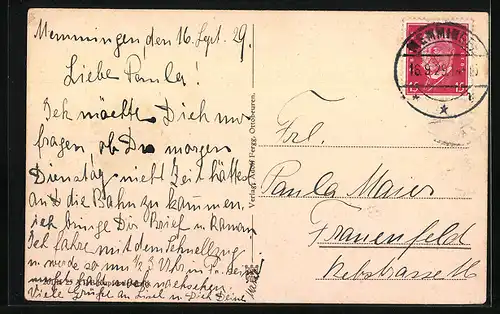 Memmingen den 16. Sept. 29.
Liebe Paula!
Ich möchte Dich nur
fragen ob Du morgen
Dienstag nicht Zeit hättest
an die Bahn zu kommen,
ich bringe Dir Brief u.
Ich fahre mit dem Schnellzug
u. werde so um ½ 3 Uhr in
nachsehen.
Viele Grüße an Liesel u. Dich Deine
Verlag: Adolf Fergg, Ottobeuren.
MEMMINGEN
16.9.29
15 15
Frl.
Paula Maier
Frauenfeld
Rebstrasse 16